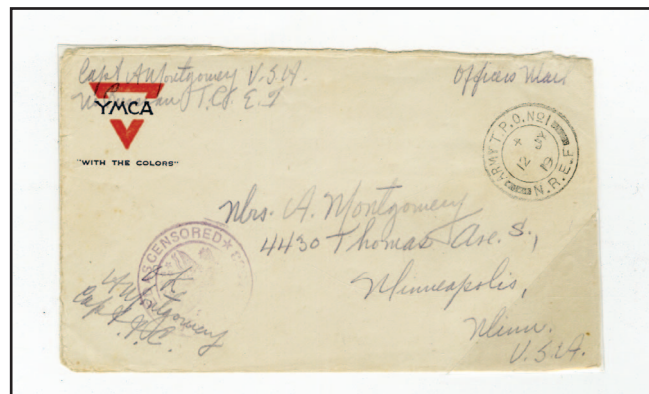 Capt A Montgomery U.S.A.
T.C. E.
Officers Mail
YMCA
"WITH THE COLORS"
ARMY T.P.O. No1
12
19
N.R.E.F.
Mrs. A. Montgomery
4430 Thomas Ave. S.,
Minneapolis,
Minn.
U.S.A.
CENSORED
O.K.
A Montgomery
Capt.